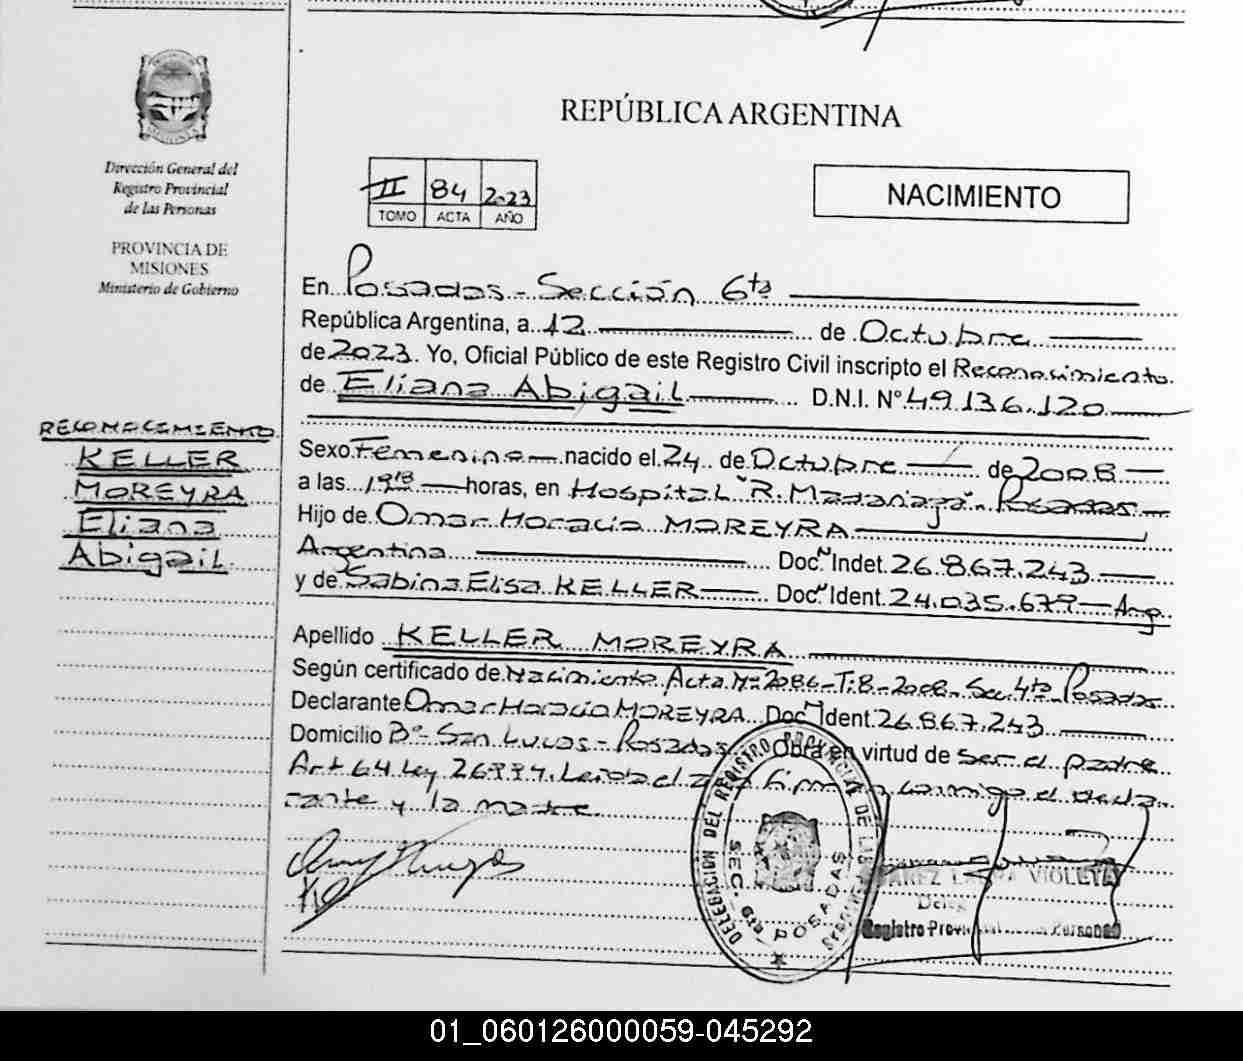 Dirección General del
Registro Provincial
de las Personas
PROVINCIA DE
MISIONES
Ministerio de Gobierno
REPÚBLICA ARGENTINA
II 84 2023
TOMO ACTA AÑO
NACIMIENTO
En Posadas - Sección 6ta
República Argentina, a 12 de Octubre
de 2023. Yo, Oficial Público de este Registro Civil inscripto el Reconocimiento
de Eliana Abigail D.N.I. Nº 49.136.120
RECONOCIMIENTO
KELLER
MOREYRA
Eliana
Abigail.
Sexo Femenino nacido el 24 de Octubre de 2008
a las 19 horas, en Hospital "R. Madariaga". Posadas
Hijo de Omar Horacio MOREYRA
Argentina Doc. Indet. 26.867.243
y de Sabina Elisa KELLER Doc. Ident. 24.035.679 - Arg
Apellido KELLER MOREYRA
Según certificado de Nacimiento Acta Nº 2086-T:8-2008-Sec 4ta Posadas
Declarante Omar Horacio MOREYRA Doc Ident. 26.867.243
Domicilio Bº San Lucas - Posadas Obra en virtud de ser el padre
Art 64 Ley 26994. Leída el acta firman conmigo el decla-
rante y la madre
DELEGACION DEL REGISTRO PROVINCIAL DE LAS PERSONAS
SEC. 6ta POSADAS
VIOLETA
Registro Provincial Personas
01_060126000059-045292